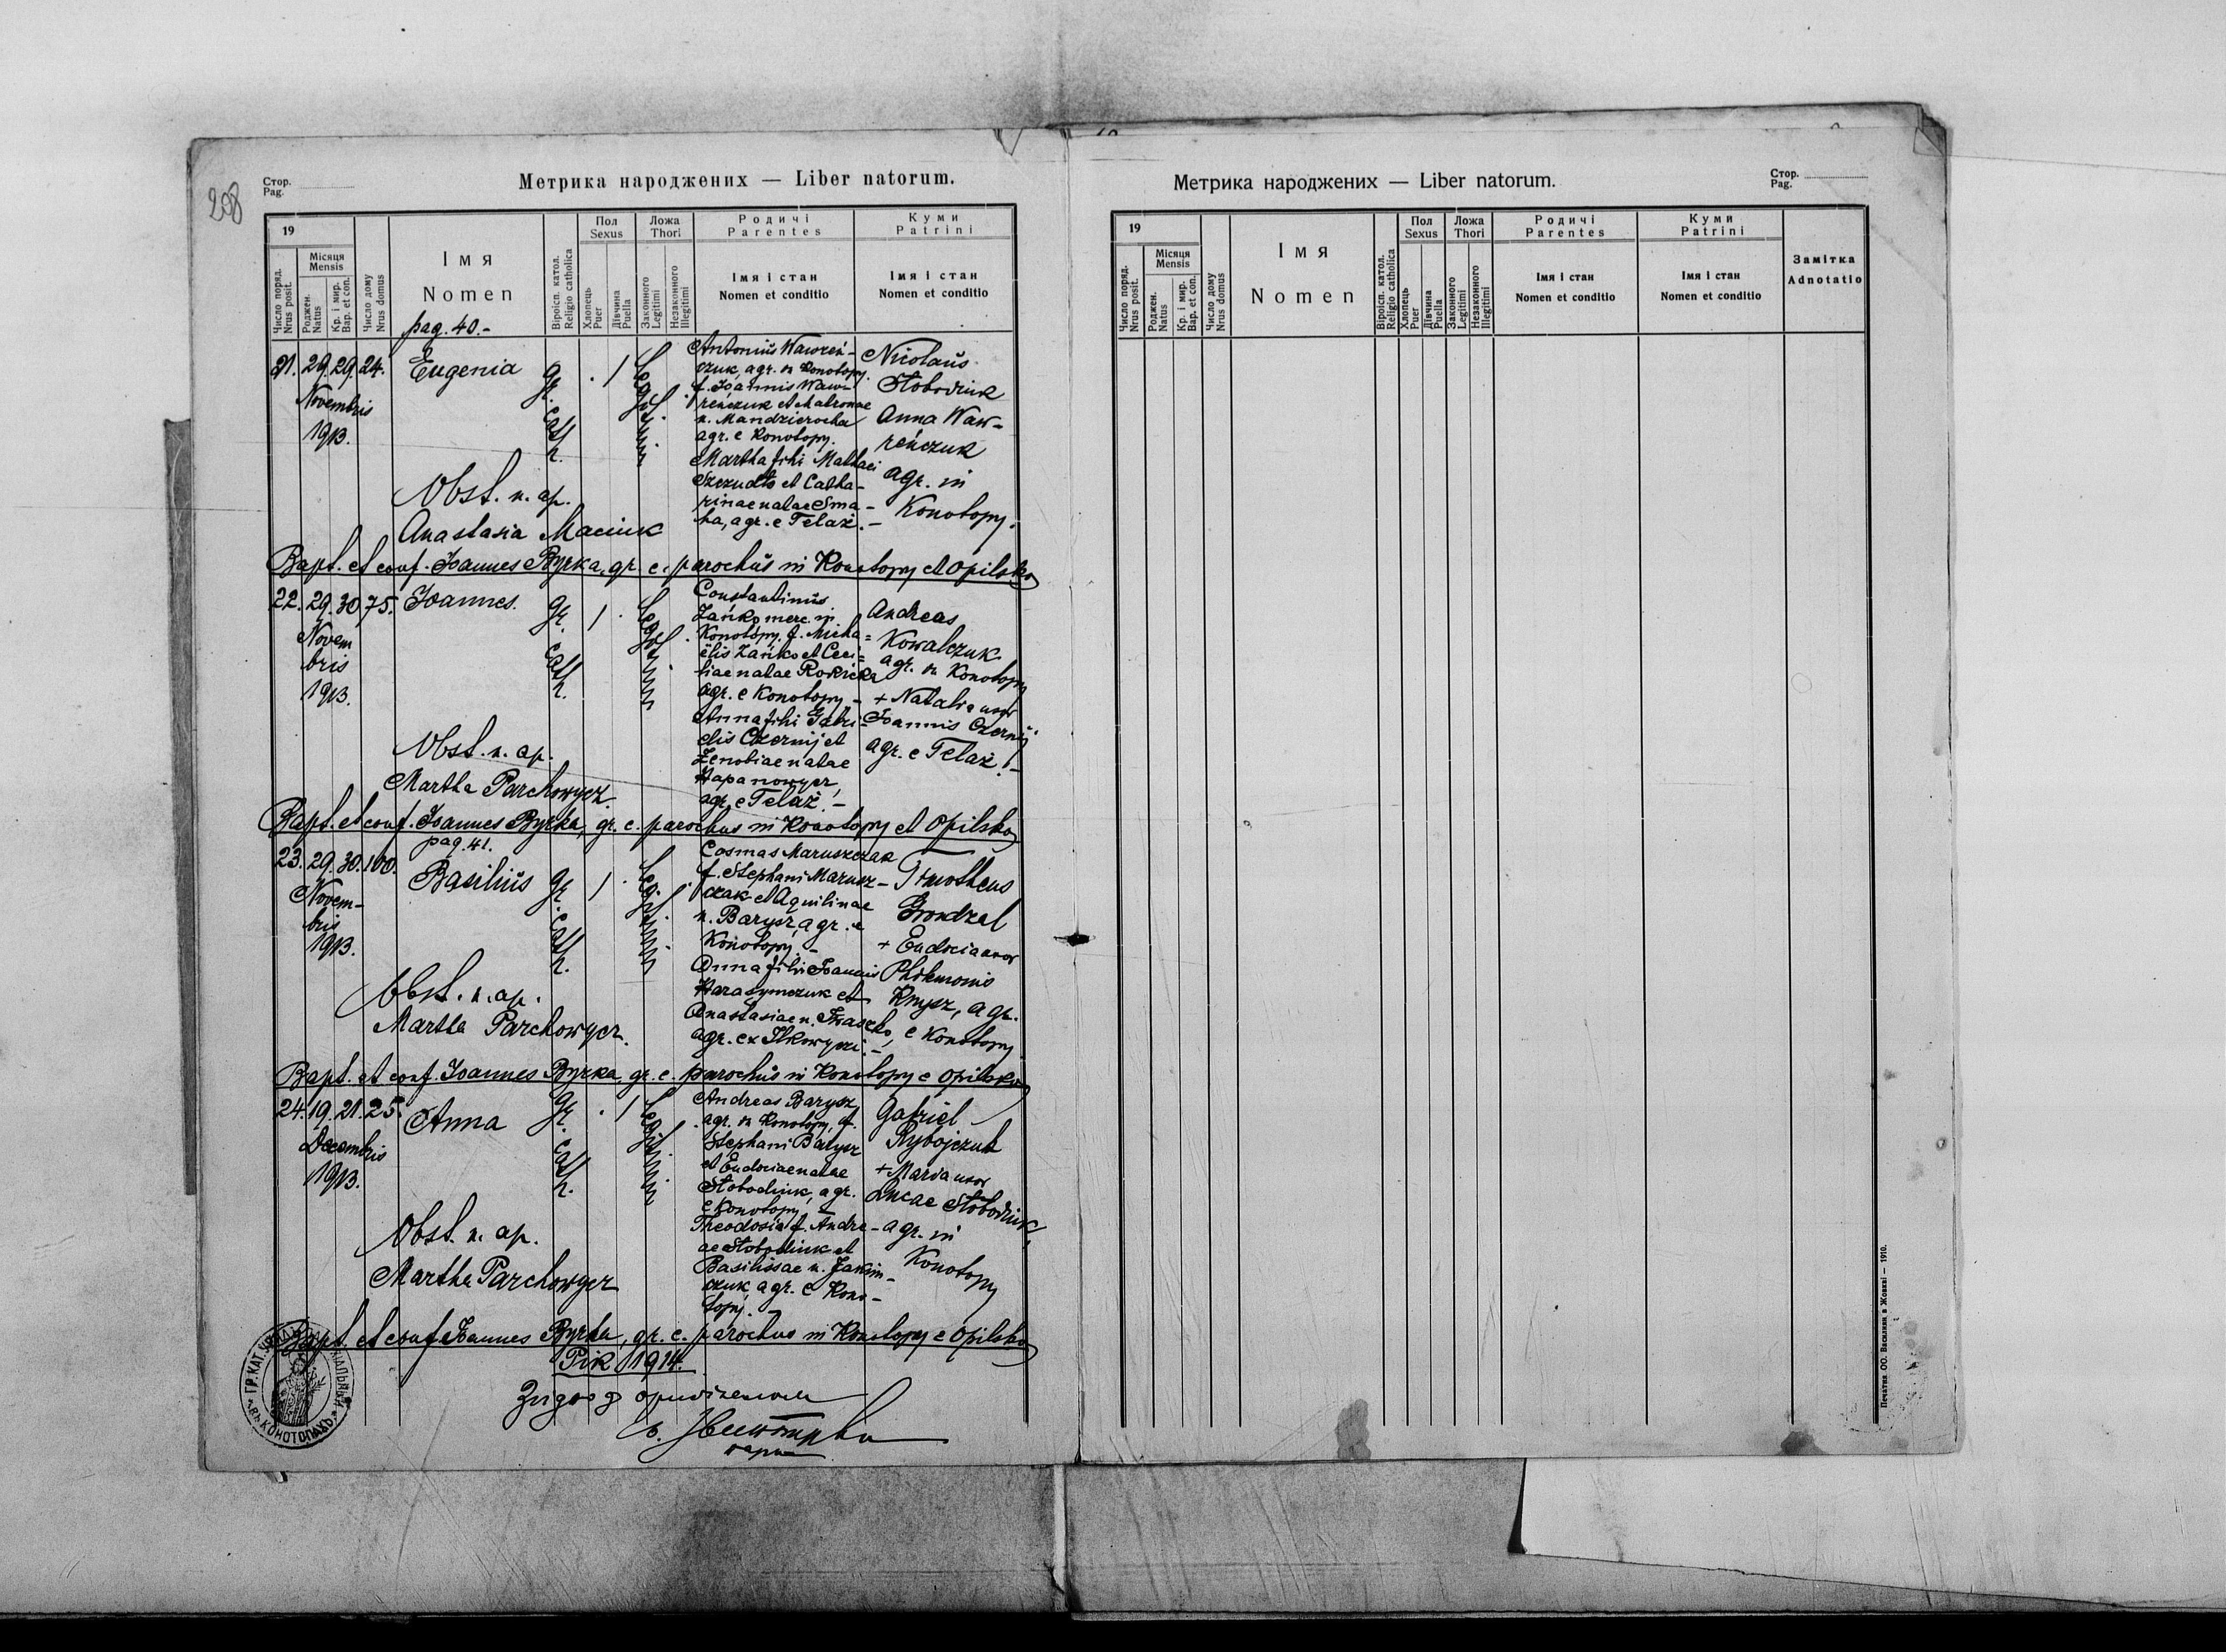 208
Стор.
Pag.
Метрика народжених — Liber natorum.
19
Число поряд.
Nrus posit.
Місяця
Mensis
Роджен.
Natus
Кр. і мир.
Bap. et con.
Число дому
Nrus domus
Імя
Nomen
Віроісп. катол.
Religio catholica
Пол
Sexus
Хлопець
Puer
Дівчина
Puella
Ложа
Thori
Законного
Legitimi
Незаконного
Illegitimi
Родичі
Parentes
Імя і стан
Nomen et conditio
Куми
Patrini
Імя і стан
Nomen et conditio
pag. 40.-
21. 29. 29. 24.
Novembris
1913.
Eugenia
gr. cath.
Legitimi
Antonius Wawreń-
czuk, agr. in Konotopy.
f. Joannis Waw-
reńczuk et Matronae
n. Mandzierocha
agr. e Konotopy.
Martha filii Mathaei
Szczudło et Catha-
rinae natae Sma-
ha, agr. e Telaż. -
Nicolaus
Słobodiuk
Anna Waw-
reńczuk
agr. in
Konotopy.
Obst. n. ap.
Anastasia Maciuk
Bapt. et conf. Joannes Byrka, gr. c. parochus in Konotopy et Opilsko
22. 29. 30. 75.
Novem
bris
1913.
Joannes.
gr. cath.
Legitimi
Constantinus
Zańko merc. in
Konotopy. f. Micha=
ëlis Zańko et Ceci=
liae natae Rokicka
agr. e Konotopy. -
Anna filii Gabri-
elis Czernij et
Zenobiae natae
Hapanowycz,
agr. e Telaż. -
Andreas
Kowalczuk
agr. in Konotopy
+ Natalia uxor
Joannis Czernij
agr. e Telaż. -
Obst. n. ap.
Martha Parchowycz.
Bapt. et conf. Joannes Byrka, gr. c. parochus in Konotopy et Opilsko
pag. 41.
23. 29. 30. 100.
Novem-
bris
1913.
Basilius
gr. cath.
Legitimi
Cosmas Maruszczak
f. Stephani Marusz-
czak et Aquilinae
n. Barysz, agr. e
Konotopy. -
Anna filii Joannis
Harasymczuk et
Anastasiae n. Iwaszko,
agr. ex Ilkowyczi. -
Timotheus
Grondzal
+ Eudocia uxor
Philemonis
Knysz, agr.
e Konotopy
Obst. n. ap.
Martha Parchowycz.
Bapt. et conf. Joannes Byrka, gr. c. parochus in Konotopy e Opilsko
24. 19. 21. 25.
Decembris
1913.
Anna
gr. cath.
Legitimi
Andreas Barysz
agr. in Konotopy, f.
Stephani Barysz
et Eudociae natae
Słobodiuk, agr.
e Konotopy. -
Theodosia f. Andre-
ae Słobodiuk et
Basilissae n. Jakim-
czuk, agr. e Kono-
topy. -
Gabriel
Rybojczuk
+ Maria uxor
Lucae Słobodiuk,
agr. in
Konotopy
Obst. n. ap.
Martha Parchowycz
Bapt. et conf. Joannes Byrka, gr. c. parochus in Konotopy e Opilsko
Рік 1914.
Згідно з оригіналом
ГР. КАТ.
ВЪ КОНОТОПАХЪ
Метрика народжених — Liber natorum.
Стор.
Pag.
19
Число поряд.
Nrus posit.
Місяця
Mensis
Роджен.
Natus
Кр. і мир.
Bap. et con.
Число дому
Nrus domus
Імя
Nomen
Віроісп. катол.
Religio catholica
Пол
Sexus
Хлопець
Puer
Дівчина
Puella
Ложа
Thori
Законного
Legitimi
Незаконного
Illegitimi
Родичі
Parentes
Імя і стан
Nomen et conditio
Куми
Patrini
Імя і стан
Nomen et conditio
Замітка
Adnotatio
Печатня ОО. Василиян в Жовкві — 1910.